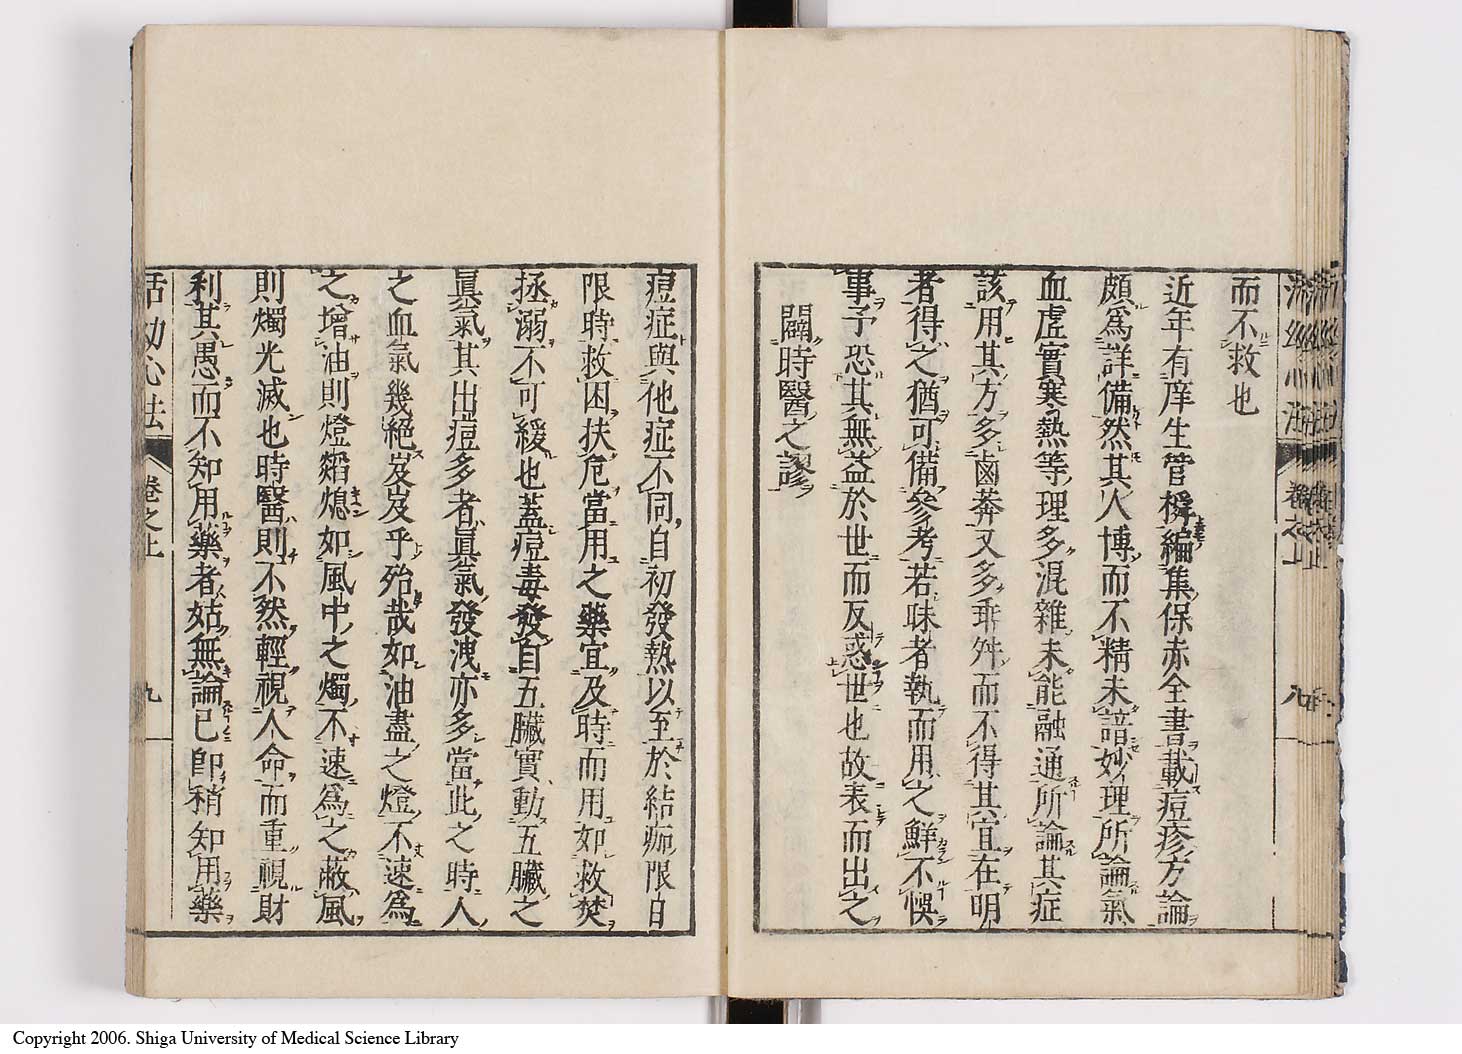 而不救也
近年有庠生管橓編集保赤全書載痘疹方論
頗爲詳備然其人博而不精未諳妙理所論氣
血虛實寒熱等理多混雜未能融通所論其症
該用其方多鹵莽又多乖舛而不得其宜在明
者得之猶可備參考若昧者執而用之鮮不悞
事予恐其無益於世而反惑世也故表而出之
闢時醫之謬
痘症與他症不同自初發熱以至於結痂限日
限時救困扶危當用之藥宜及時而用如救焚
拯溺不可緩也蓋痘毒發自五臟實動五臟之
眞氣其出痘多者眞氣發洩亦多當此之時人
之血氣幾絕岌岌乎殆哉如油盡之燈不速爲
之增油則燈熖熄如風中之燭不速爲之蔽風
則燭光滅也時醫則不然輕視人命而重視財
利其愚而不知用藥者姑無論已卽稍知用藥
活幼心法
卷之上
九
Copyright 2006. Shiga University of Medical Science Library